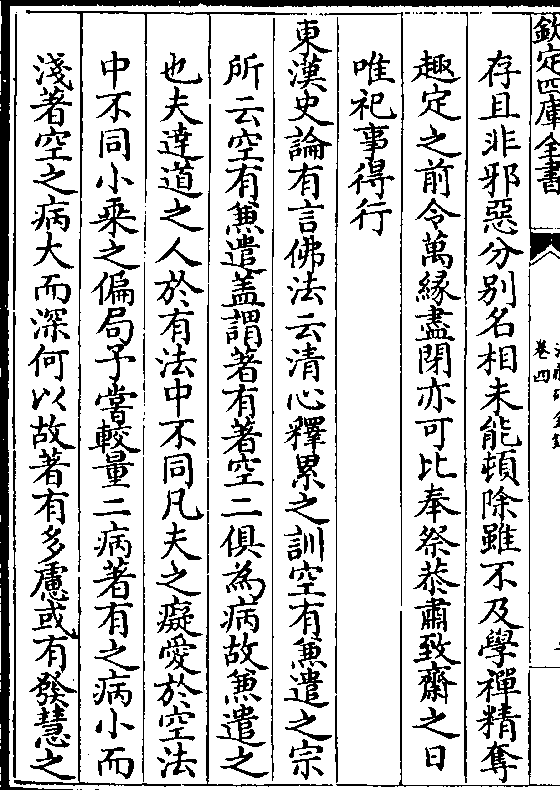 欽定四庫全書
卷四
存且非邪惡分別名相未能頓除雖不及學禪精奪
趣定之前令萬緣盡閉亦可比奉祭恭肅致齋之日
唯祀事得行
東漢史論有言佛法云清心釋累之訓空有兼遣之宗
所云空有兼遣蓋謂著有著空二俱為病故兼遣之
也夫達道之人於有法中不同凡夫之癡愛於空法
中不同小乘之偏局予嘗較量二病著有之病小而
淺著空之病大而深何以故著有多慮或有發慧之